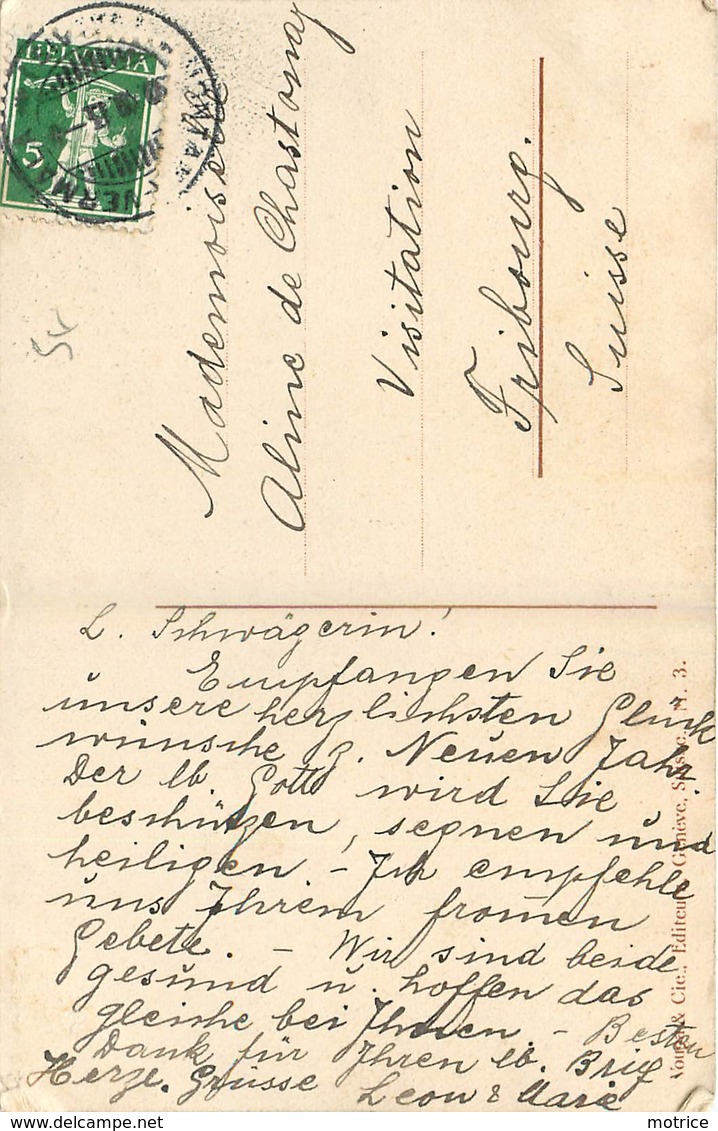 HELVETIA
5
54
Mademoiselle
Aline de Chastonay
Visitation
Fribourg.
Suisse
L. Schwägerin!
Empfangen Sie
unsere herzlichsten Glück
wünsche z. Neuen Jahr.
Der lb. Gott wird Sie
beschützen, segnen und
heiligen – Ich empfehle
uns Ihrem fromen
Gebete. – Wir sind beide
gesund u. hoffen das
gleiche bei Ihnen. – Besten
Dank für Ihren lb. Brief
Herzl. Grüsse Leon & Marie
& Cie., Editeurs, Genève, Suisse. 3.
motrice